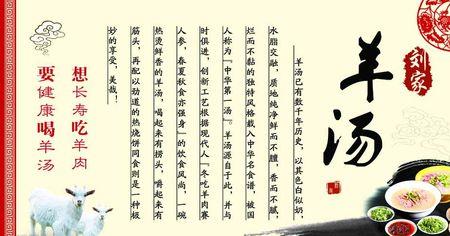 刘家
羊汤
羊汤已有数千年历史，以其色白似奶，
水脂交融，质地纯净鲜而不膻，香而不腻，
烂而不黏的独特风格载入中华名食谱，被国
人称为『中华第一汤』。羊汤源自于此，并与
时俱进，创新工艺根据现代人『冬吃羊肉赛
人参，春夏秋食亦强身』的饮食风尚，一碗
热烫鲜香的羊汤，喝起来有捞头，嚼起来有
筋头，再配以劲道的热烧饼同食则是一种极
妙的享受，美哉！
想长寿吃羊肉
要健康喝羊汤